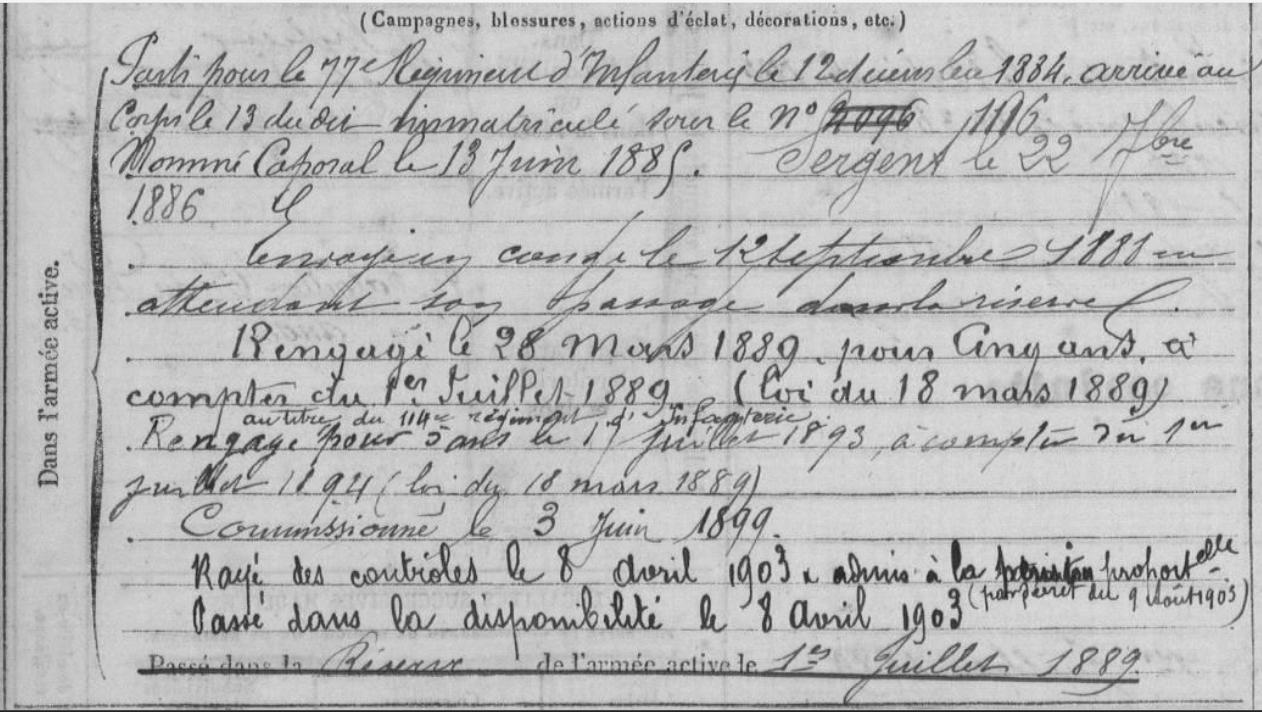 (Campagnes, blessures, actions d'éclat, décorations, etc.)
Dans l'armée active.
Parti pour le 77e Régiment d'Infanterie le 12 décembre 1884, arrivé au
Corps le 13 du dit immatriculé sous le No 4096 1116
Nommé Caporal le 13 Juin 1885. Sergent le 22 7bre
1886
Envoyé en congé le 12 Septembre 1888 en
attendant son passage dans la réserve.
Rengagé le 28 Mars 1889, pour Cinq ans, à
compter du 1er Juillet 1889 (loi du 18 mars 1889)
au titre du 114e régiment d'Infanterie
Rengagé pour 5 ans le Juillet 1893, à compter du 1er
juillet 1894 (loi du 18 mars 1889)
Commissionné le 3 Juin 1899.
Rayé des contrôles le 8 avril 1903 admis à la pension proportelle
(par décret du 9 Août 1903)
Passé dans la disponibilité le 8 Avril 1903
Passé dans la Réserve de l'armée active le 1er Juillet 1889.